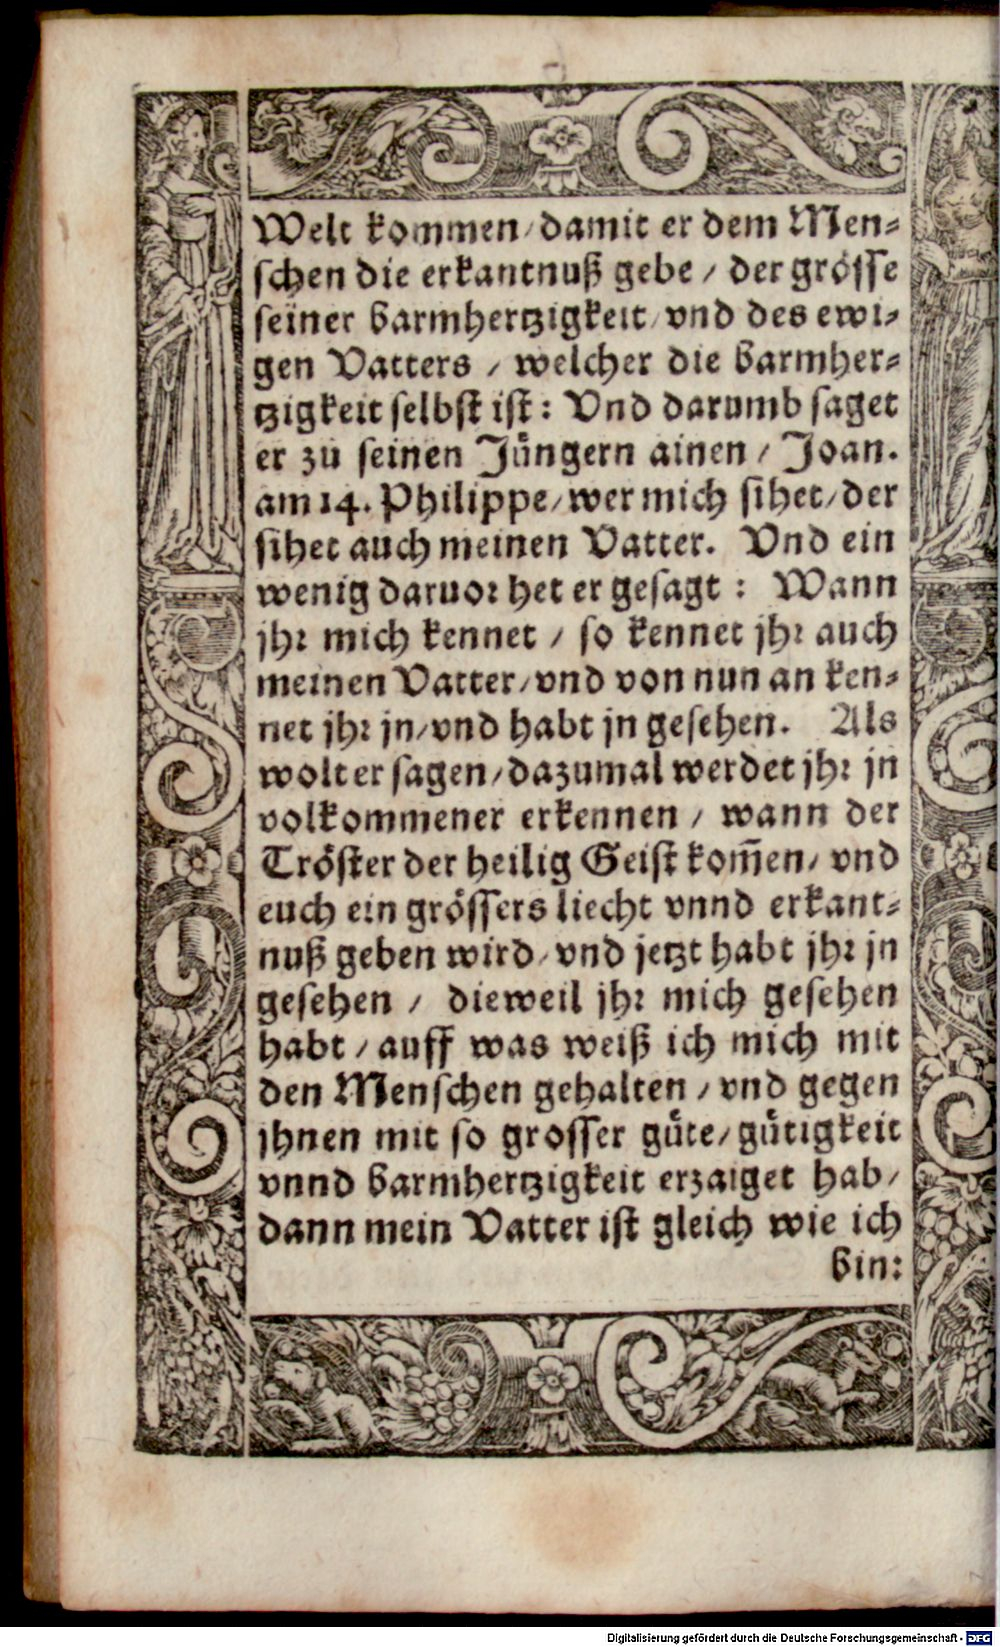 Welt kommen/ damit er dem Men⸗
schen die erkantnuß gebe / der grösse
seiner barmhertzigkeit/ vnd des ewi⸗
gen Vatters / welcher die barmher⸗
tzigkeit selbst ist: Vnd darumb saget
er zů seinen Jüngern ainen / Joan.
am 14. Philippe/ wer mich sihet/ der
sihet auch meinen Vatter. Vnd ein
wenig daruor het er gesagt: Wann
jhr mich kennet / so kennet jhr auch
meinen Vatter/ vnd von nun an ken⸗
net jhr jn/ vnd habt jn gesehen. Als
wolt er sagen/ dazumal werdet jhr jn
volkommener erkennen / wann der
Tröster der heilig Geist kom̃en/ vnd
euch ein grössers liecht vnnd erkant⸗
nuß geben wird/ vnd jetzt habt jhr jn
gesehen / dieweil jhr mich gesehen
habt / auff was weiß ich mich mit
den Menschen gehalten / vnd gegen
jhnen mit so grosser güte/ gütigkeit
vnnd barmhertzigkeit erzaiget hab/
dann mein Vatter ist gleich wie ich
bin:
Digitalisierung gefördert durch die Deutsche Forschungsgemeinschaft - DFG